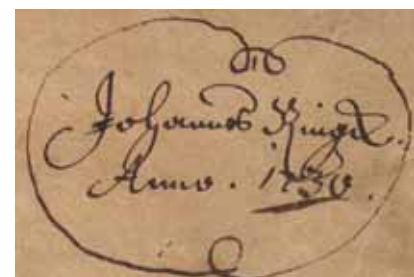 Johannes Ringk.
Anno. 1730.